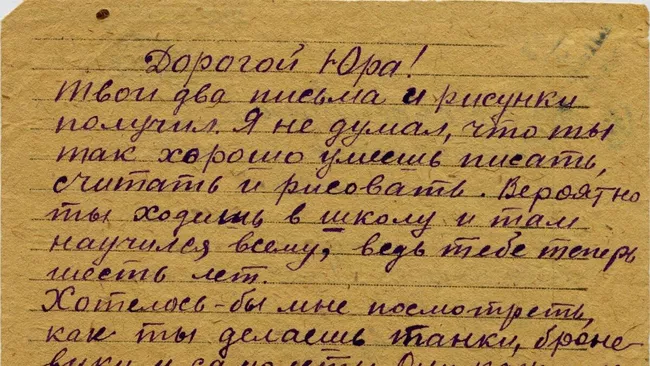 Дорогой Юра!
Твои два письма и рисунки
получил. Я не думал, что ты
так хорошо умеешь писать,
считать и рисовать. Вероятно
ты ходишь в школу и там
научился всему, ведь тебе теперь
шесть лет.
Хотелось-бы мне посмотреть,
как ты делаешь танки, броне
вики и самолеты. Они